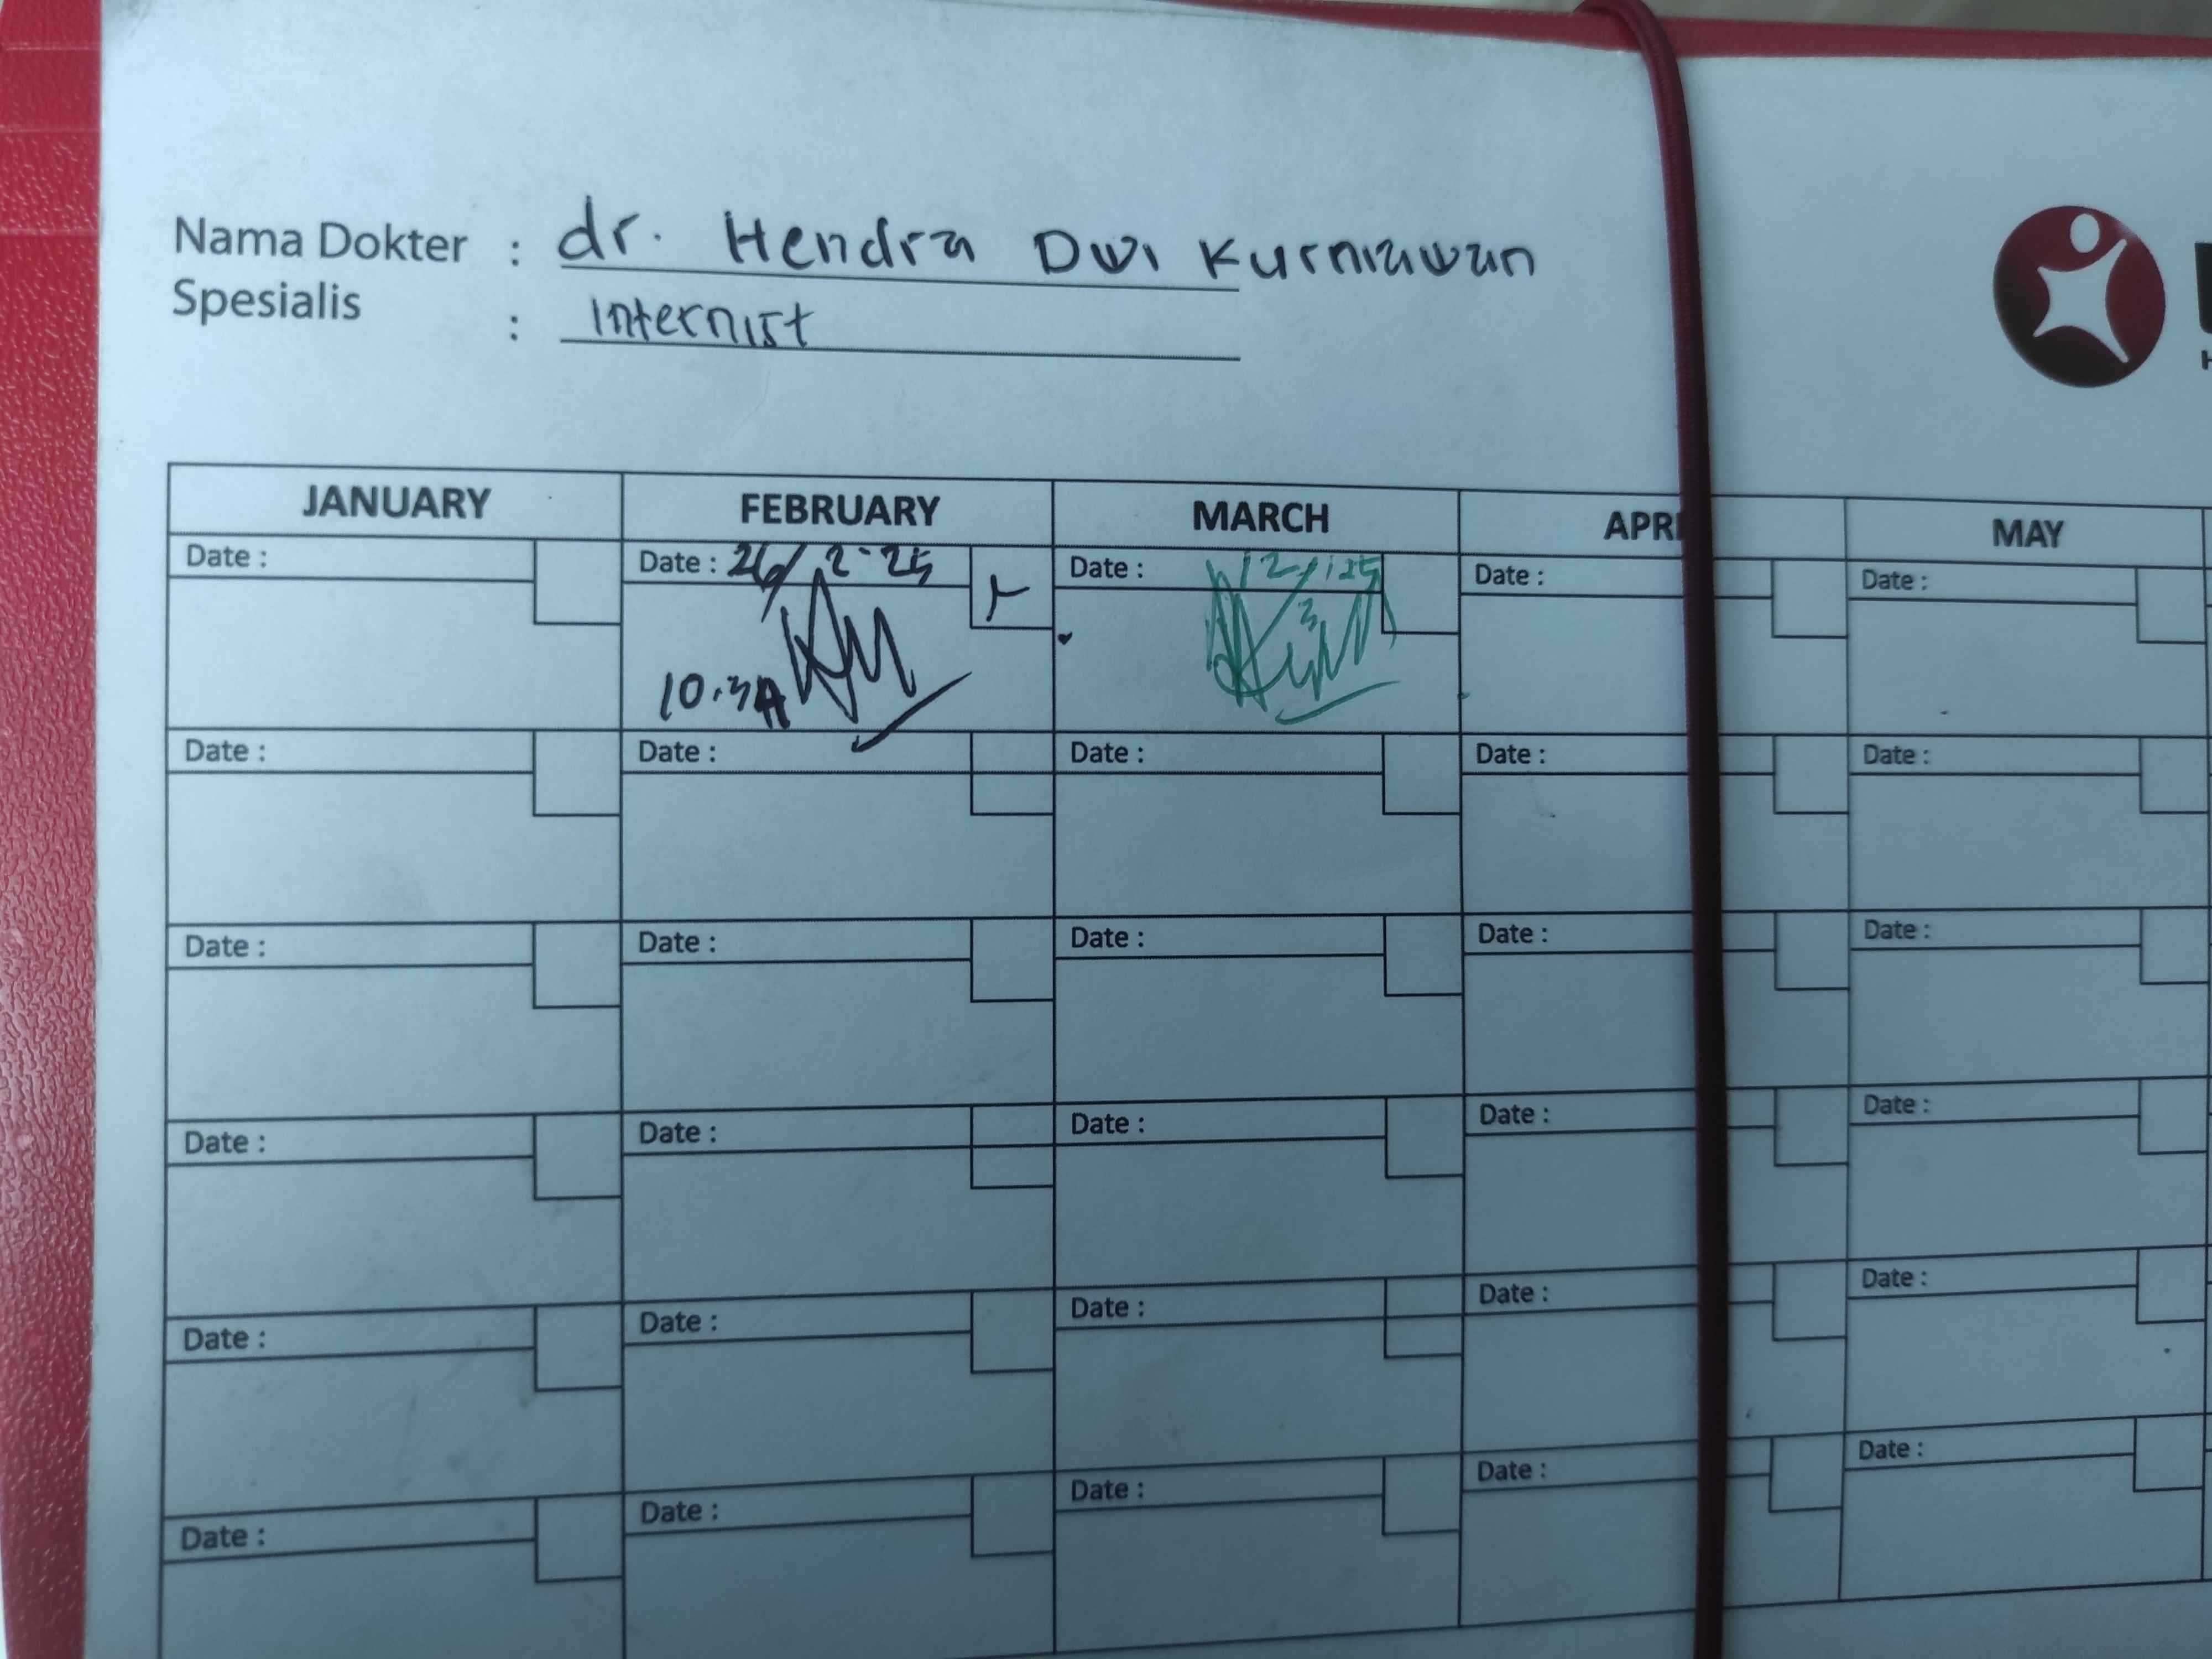 Nama Dokter : dr. Hendra Dwi Kurniawan
Spesialis : Internist
JANUARY FEBRUARY MARCH APRI MAY
Date : Date : 26/2-25 Date : Date : Date :
Date : Date : Date : Date : Date :
Date : Date : Date : Date : Date :
Date : Date : Date : Date : Date :
Date : Date : Date : Date : Date :
Date : Date : Date : Date : Date :